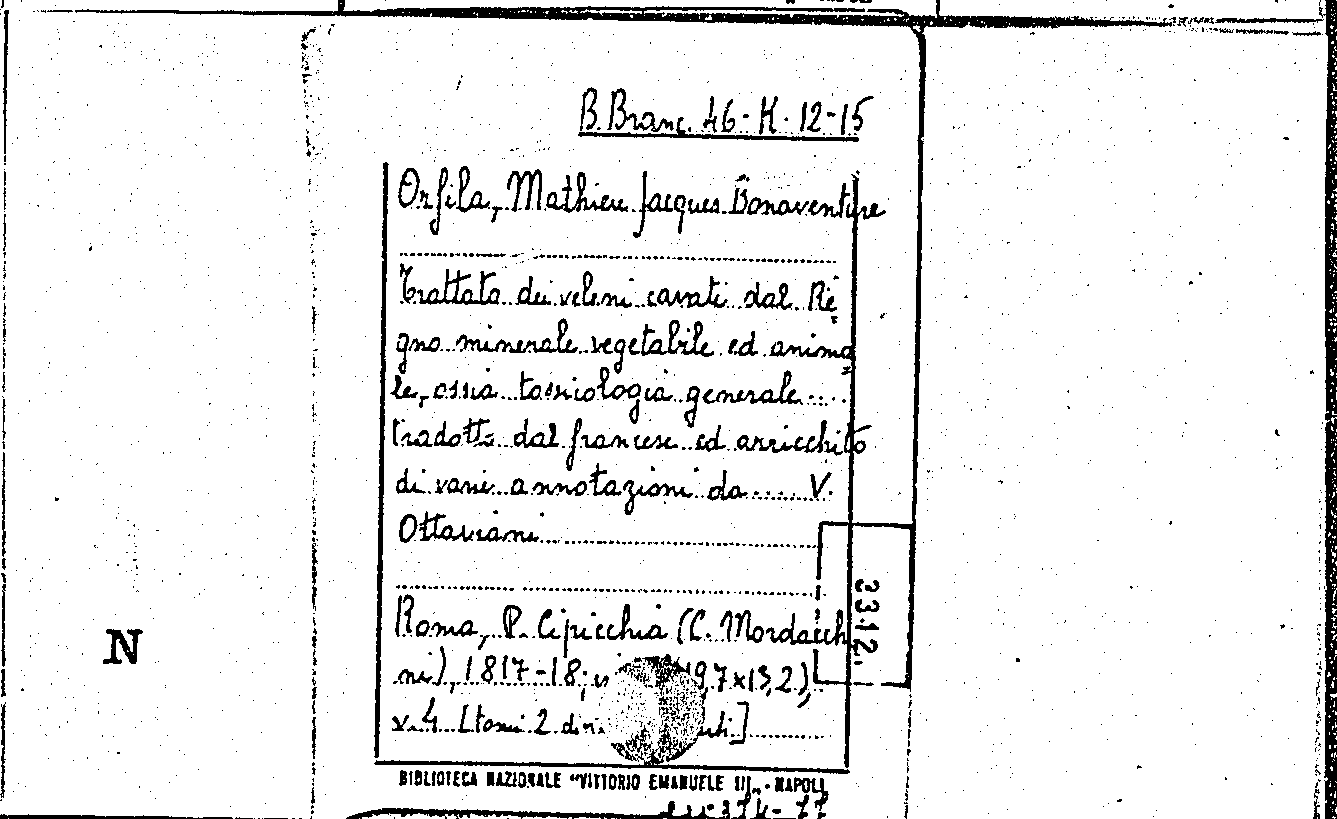 B. Branc. 46-H. 12-15
Orfila, Mathieu Jacques Bonaventure
Trattato dei veleni cavati dal Re
gno minerale vegetabile ed anima
le, ossia tossicologia generale....
tradotto dal francese ed arricchito
di varie annotazioni da.... V.
Ottaviani
Roma, P. Cipicchia (C. Mordacch
ni), 1817-18; 19,7x13,2),
v. 4 [tomi 2
BIBLIOTECA NAZIONALE "VITTORIO EMANUELE III" - NAPOLI
3312.
N